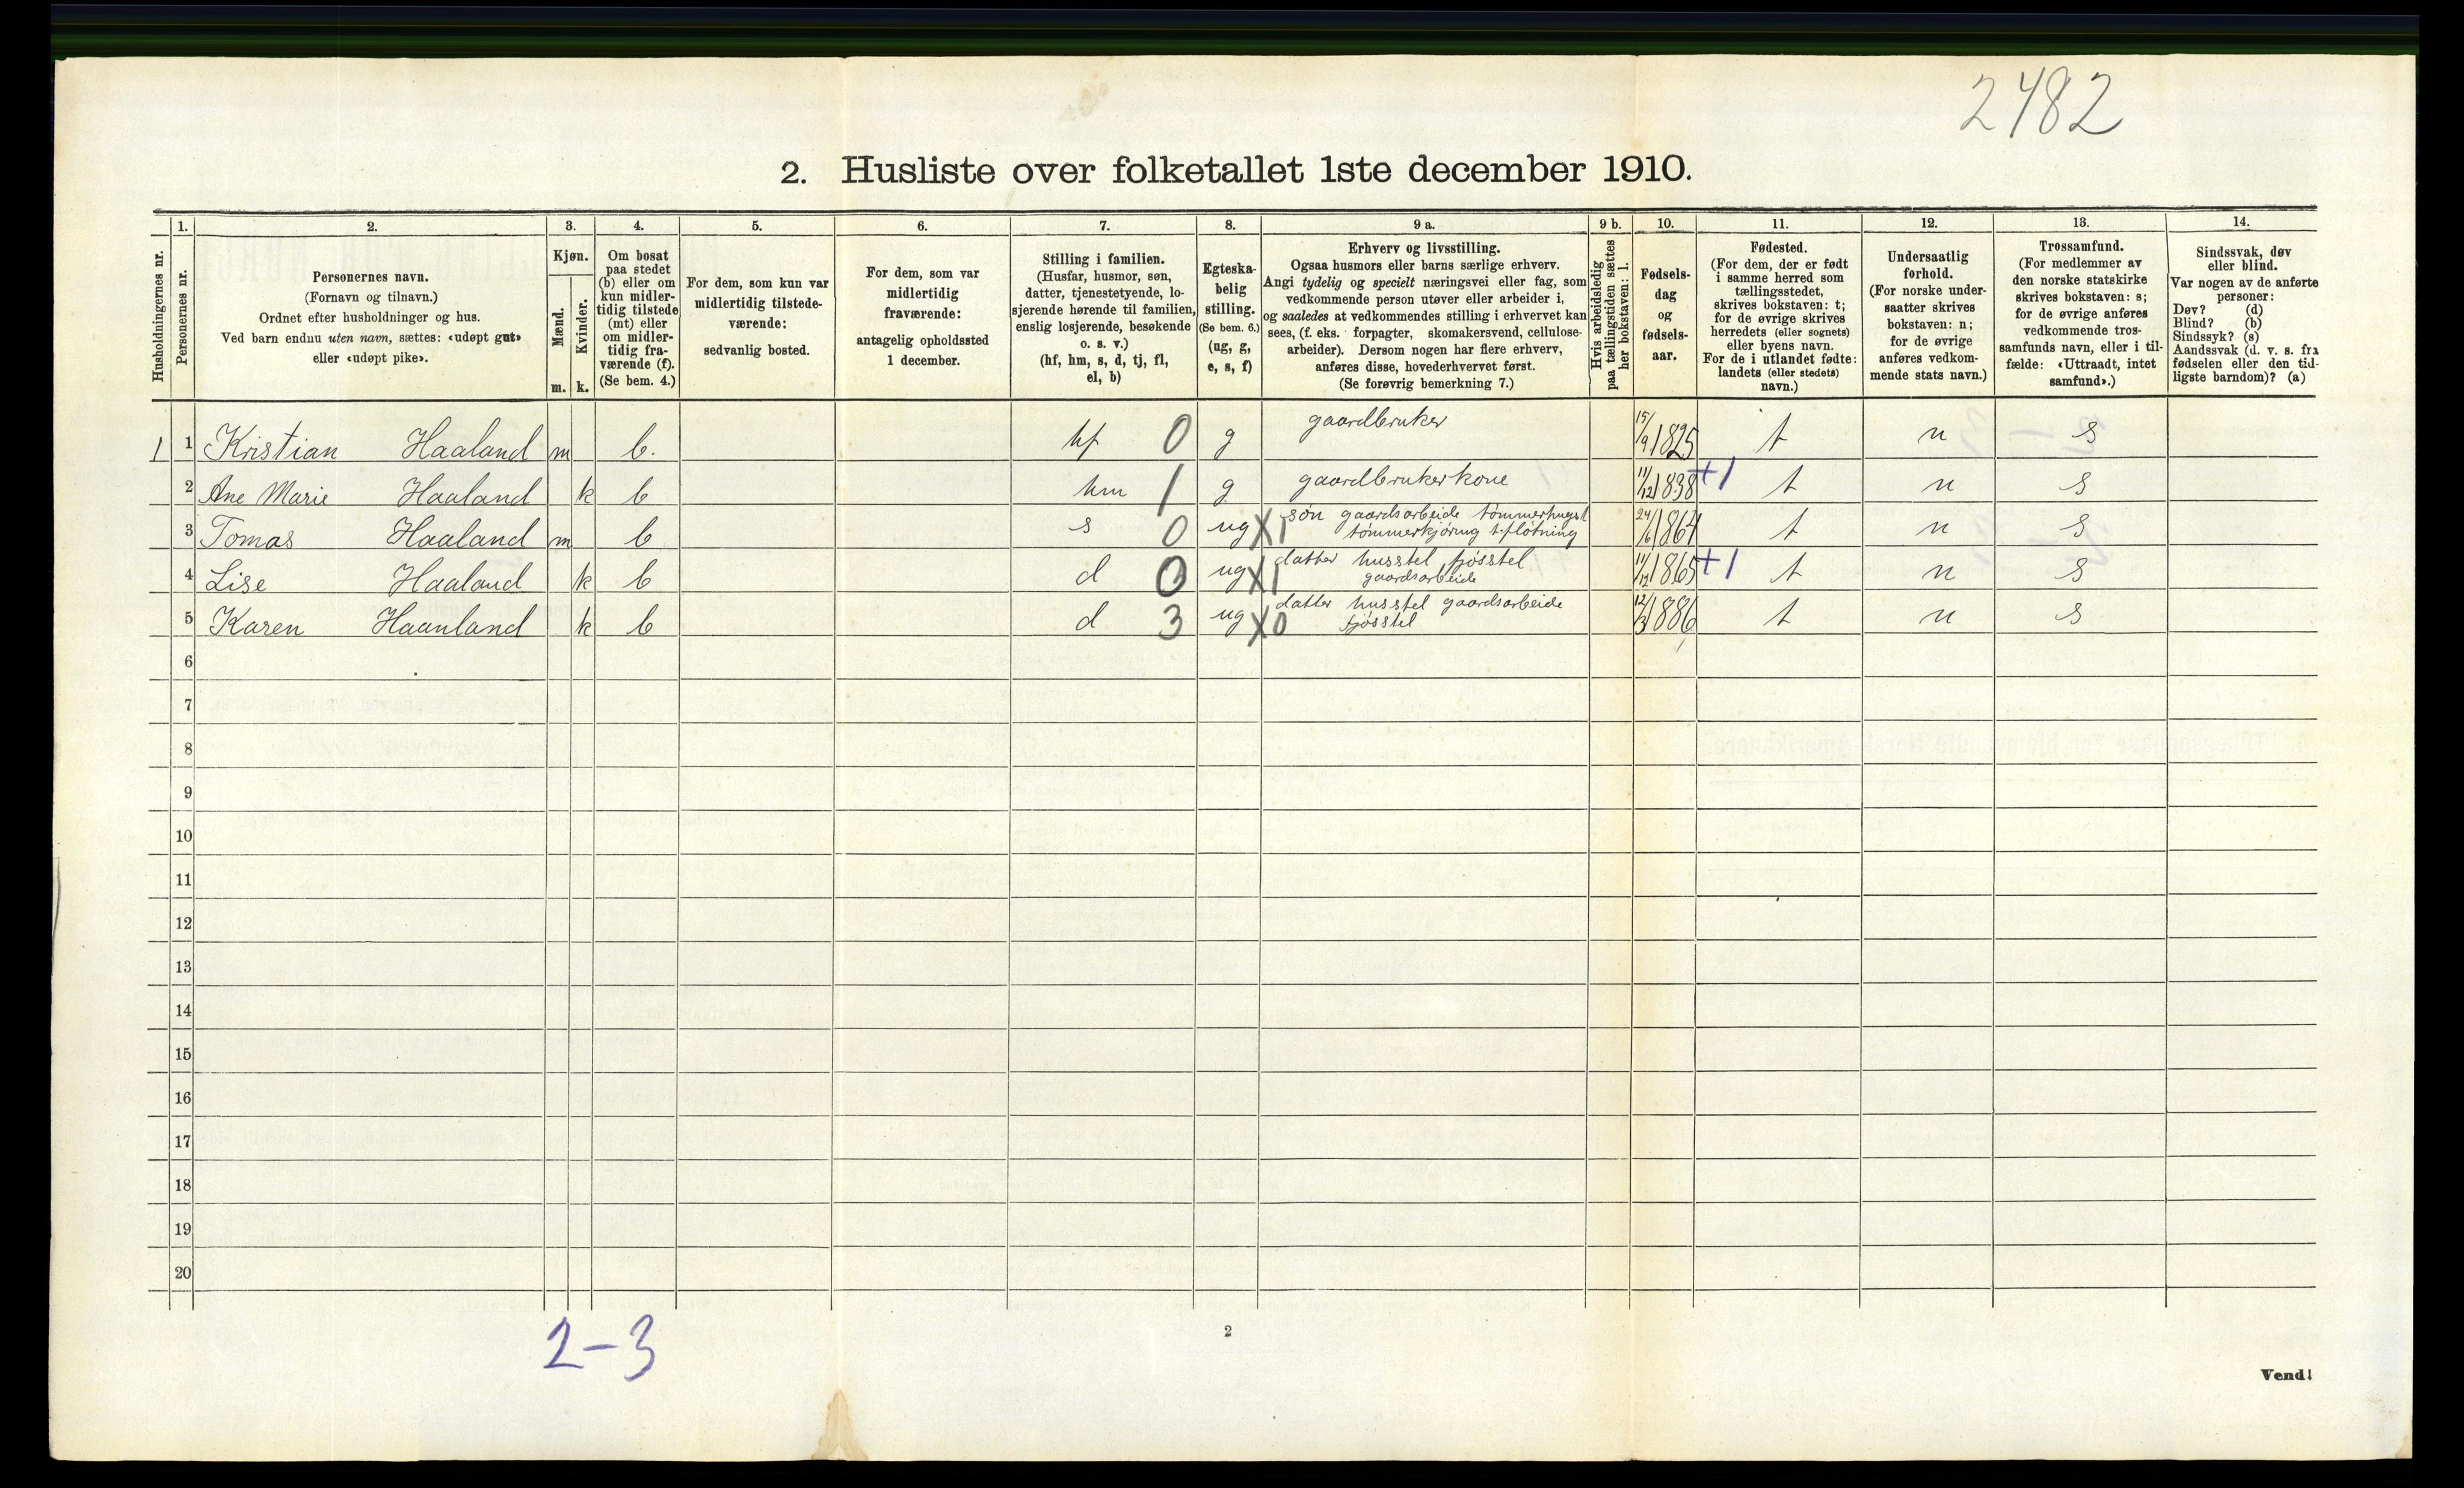 2482
2. Husliste over folketallet 1ste december 1910.
1. 2. 3. 4. 5. 6. 7. 8. 9 a. 9 b. 10. 11. 12. 13. 14.
Husholdningernes nr.
Personernes nr.
Personernes navn.
(Fornavn og tilnavn.)
Ordnet efter husholdninger og hus.
Ved barn endnu uten navn, sættes: «udøpt gut»
eller «udøpt pike».
Kjøn.
Mænd.
Kvinder.
m. k.
Om bosat
paa stedet
(b) eller om
kun midler-
tidig tilstede
(mt) eller
om midler-
tidig fra-
værende (f).
(Se bem. 4.)
For dem, som kun var
midlertidig tilstede-
værende:
sedvanlig bosted.
For dem, som var
midlertidig
fraværende:
antagelig opholdssted
1 december.
Stilling i familien.
(Husfar, husmor, søn,
datter, tjenestetyende, lo-
sjerende hørende til familien,
enslig losjerende, besøkende
o. s. v.)
(hf, hm, s, d, tj, fl,
el, b)
Egteska-
belig
stilling.
(Se bem. 6.)
(ug, g,
e, s, f)
Erhverv og livsstilling.
Ogsaa husmors eller barns særlige erhverv.
Angi tydelig og specielt næringsvei eller fag, som
vedkommende person utøver eller arbeider i,
og saaledes at vedkommendes stilling i erhvervet kan
sees, (f. eks. forpagter, skomakersvend, cellulose-
arbeider). Dersom nogen har flere erhverv,
anføres disse, hovederhvervet først.
(Se forøvrig bemerkning 7.)
Hvis arbeidsledig
paa tællingstiden sættes
her bokstaven: l.
Fødsels-
dag
og
fødsels-
aar.
Fødested.
(For dem, der er født
i samme herred som
tællingsstedet,
skrives bokstaven: t;
for de øvrige skrives
herredets (eller sognets)
eller byens navn.
For de i utlandet fødte:
landets (eller stedets)
navn.)
Undersaatlig
forhold.
(For norske under-
saatter skrives
bokstaven: n;
for de øvrige
anføres vedkom-
mende stats navn.)
Trossamfund.
(For medlemmer av
den norske statskirke
skrives bokstaven: s;
for de øvrige anføres
vedkommende tros-
samfunds navn, eller i til-
fælde: «Uttraadt, intet
samfund».)
Sindssvak, døv
eller blind.
Var nogen av de anførte
personer:
Døv? (d)
Blind? (b)
Sindssyk? (s)
Aandssvak (d. v. s. fra
fødselen eller den tid-
ligste barndom)? (a)
1 1 Kristian Haaland m b. hf 0 g gaardbruker 15/9 1825 t n s
2 Ane Marie Haaland k b hm 1 g gaardbrukerkone 11/12 1838 +1 t n s
3 Tomas Haaland m b s 0 ug X1 søn gaardsarbeide tømmerhugst
tømmerkjøring t.fløtning 24/6 1864 t n s
4 Lise Haaland k b d 0 ug X1 datter husstel fjøsstel
gaardsarbeide 11/12 1865 +1 t n s
5 Karen Haanland k b d 3 ug X0 datter husstel gaardsarbeide
fjøsstel 12/3 1886 t n s
6
7
8
9
10
11
12
13
14
15
16
17
18
19
20
2-3
2
Vend!